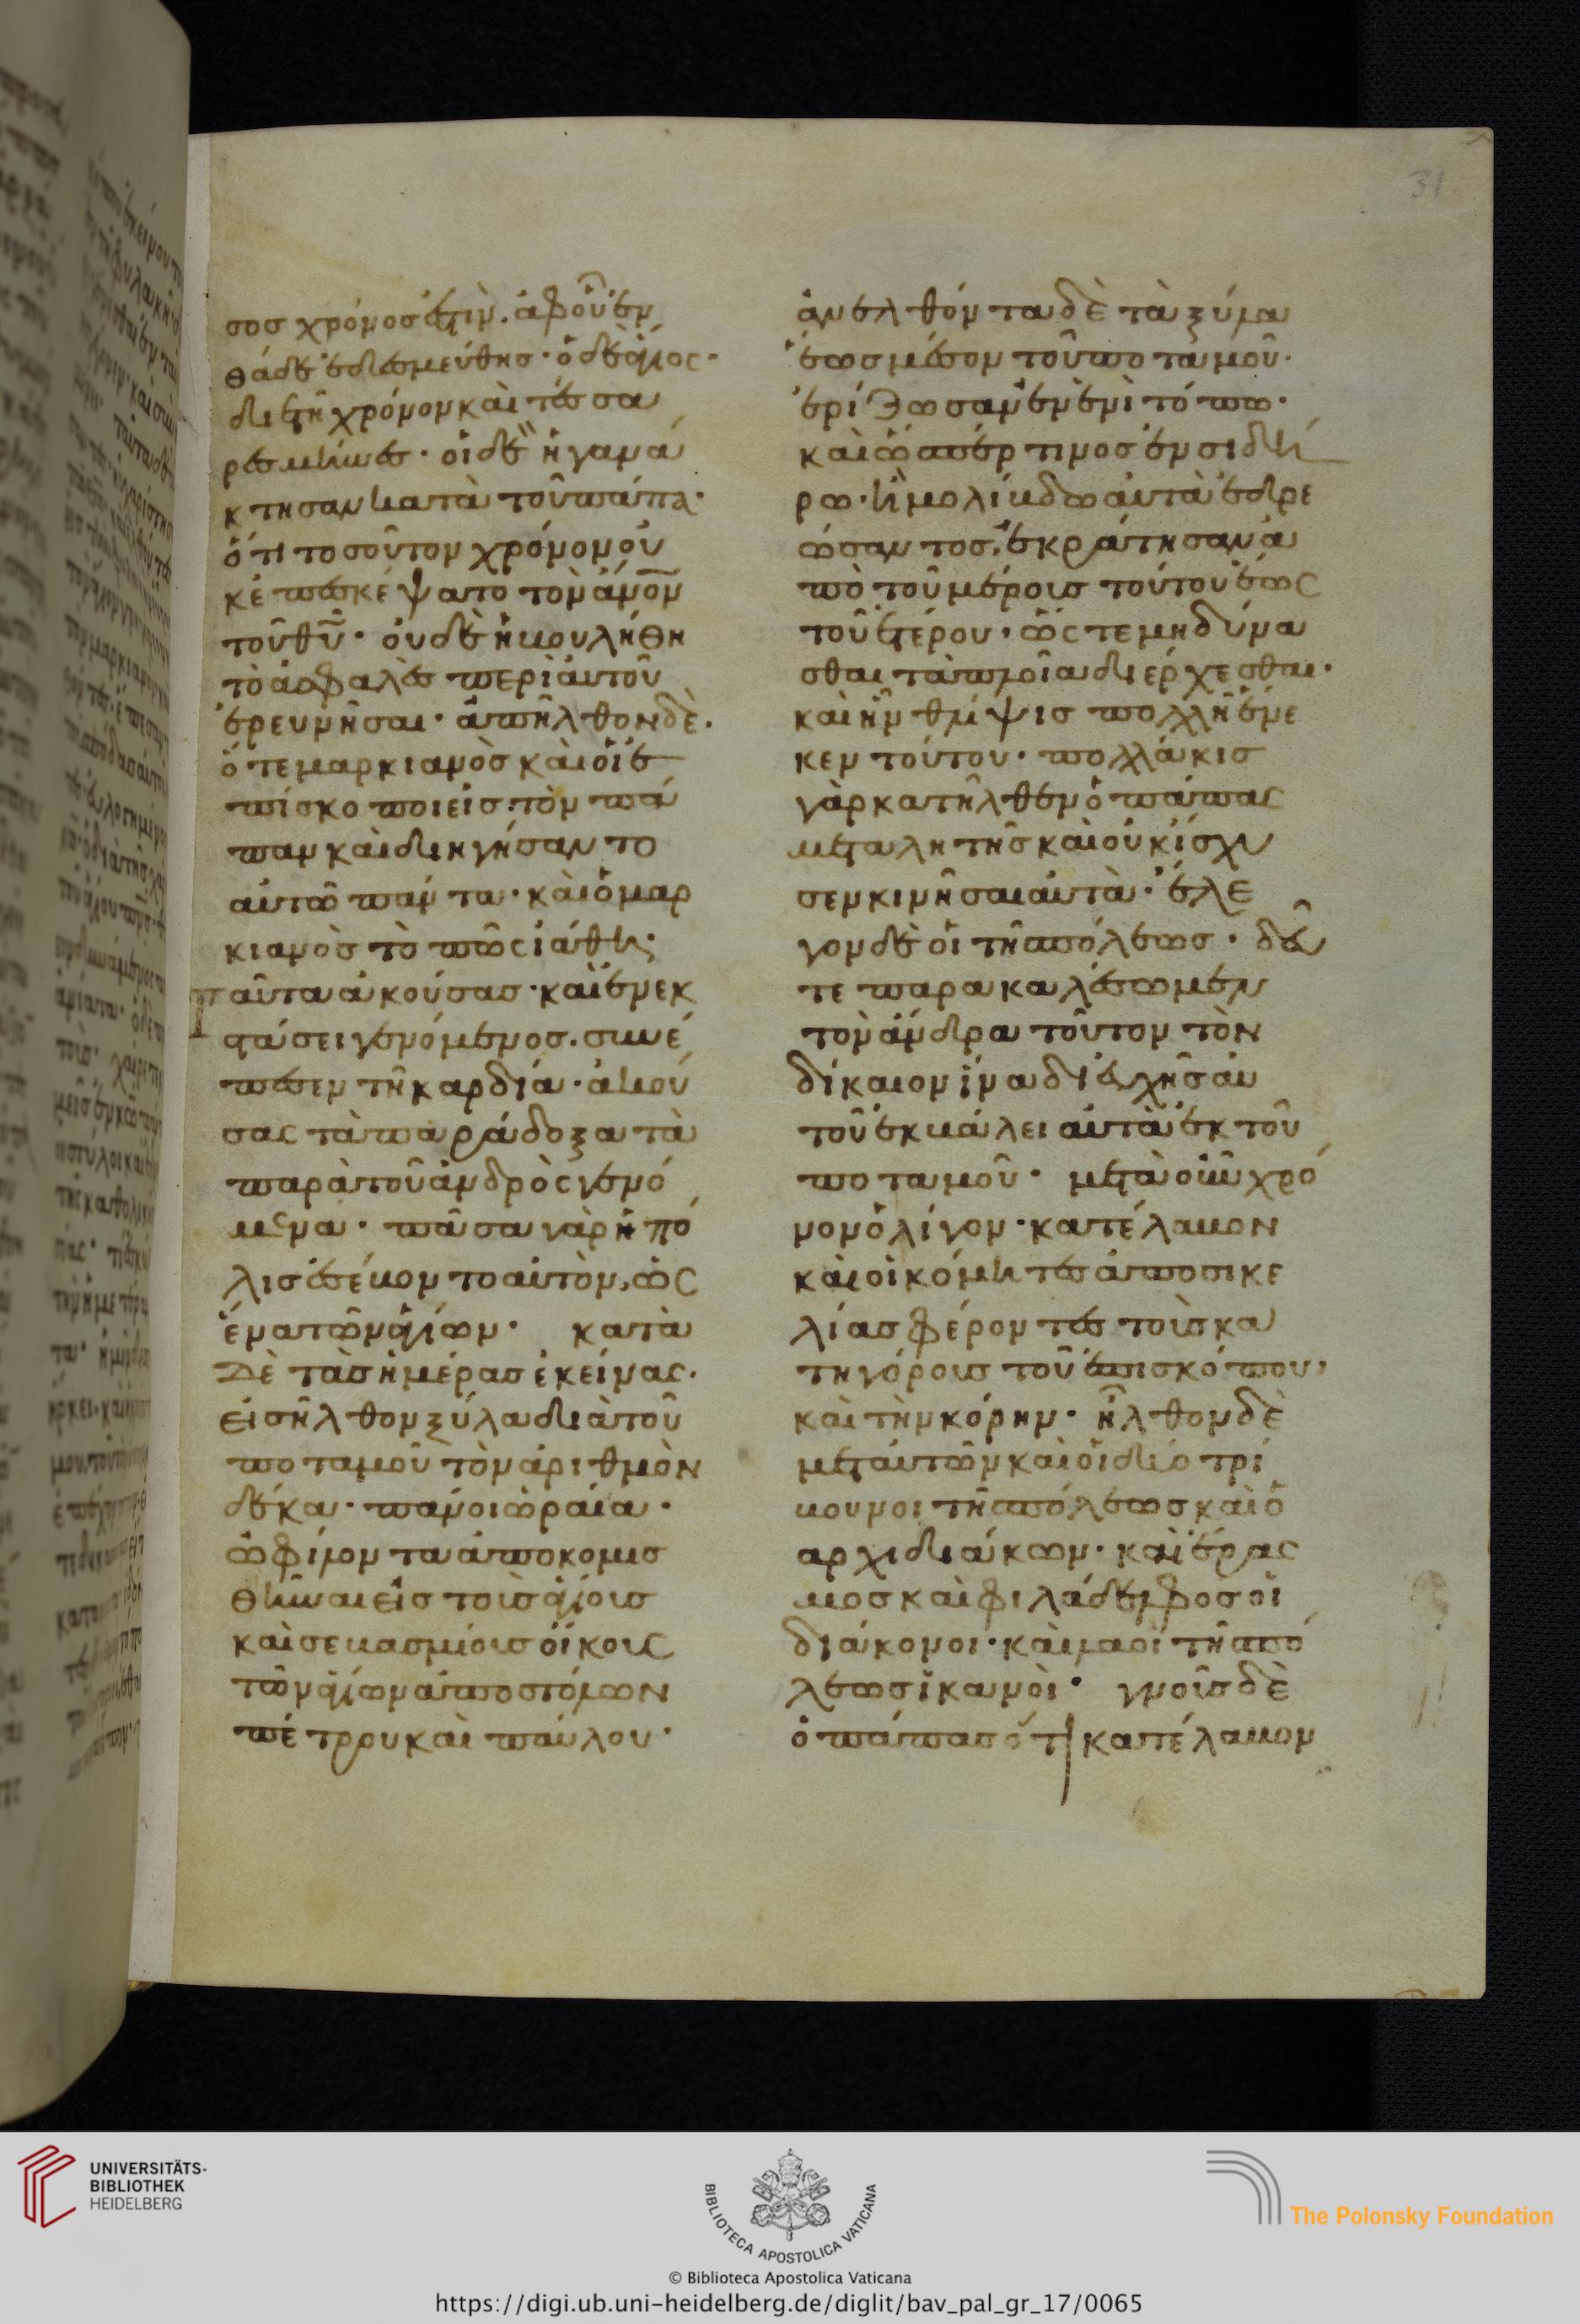 σοσ χρόνοσ ἐστὶν. ἀφ οὗ ἐν
θάδε ἐδεσμεύθησ· ὁ δὲ ἅγιος·
διετῆ χρόνον καὶ τέσσα
ρεσ μῆνεσ· οἱ δὲ ἠγανά
κτησαν κατὰ τοῦ πάπα·
ὅτι τοσοῦτον χρόνον οὐ
κ ἐπεσκέψατο τὸν ἄνο̅ν̅
τοῦ θυ̅· οὐδὲ ἠβουλήθη
τὸ ἀσφαλὲσ περὶ αὐτοῦ
ἐρευνῆσαι· ἀπῆλθον δὲ·
ὅ τε μαρκιανὸσ καὶ οἱ ἐ
πίσκοποι εἰσ τὸν πά
παν καὶ διηγήσαντο
αὐτῶ πάντα· καὶ ὁ μαρ
κιανὸσ τὸ πῶς ἰάθη·
Ταῦτα ἀκούσασ· καὶ ἐν ἐκ
στάσει γενόμενοσ. συνέ
πεσεν τῆ καρδία· ἀκού
σας τὰ παράδοξα τὰ
παρὰ τοῦ ἀνδρὸς γενό
μενα· πᾶσα γὰρ ἡ πό
λισ ἐσέβοντο αὐτὸν, ὡς
ἕνα τῶν ἁγίων· κατὰ
Δὲ τὰσ ἡμέρασ ἐκείνας·
εἰσῆλθον ξύλα διὰ τοῦ
ποταμοῦ τὸν ἀριθμὸν
δέκα· πάνοι ὡραία·
ὤφιλον τα ἀποκομισ
θῆναι εἰσ τοὺσ ἁγίουσ
καὶ σεβασμίουσ οἴκους
τῶν ἁγίων ἀποστόλων
πέτρου καὶ παύλου·
31
ἀνελθόντα δὲ τὰ ξύλα
ἕωσ μέσον τοῦ ποταμοῦ·
ἐρίζωσαν ἐν ἑνὶ τόπω·
καὶ ὥσπέρ τινοσ ἐν σιδή
ρω· ἢ μολίβδω αὐτὰ ἑδρε
ώσαντοσ, ἐκράτησαν ἀ
πὸ τοῦ μέρουσ τούτου ἕως
τοῦ ἑτέρου· ὥς τε μὴ δύνα
σθαι τὰ πλοῖα διέρχεσθαι·
καὶ ἦν θλίψισ πολλὴ ἕνε
κεν τούτου· πολλάκισ
γὰρ κατῆλθεν ὁ πάπας
μετα λητῆσ καὶ οὐκ ἴσχυ
σεν κινῆσαι αὐτὰ· ἔλε
γον δὲ οἱ τῆσ πόλεωσ· δεῦ
τε παρακαλέσωμεν
τὸν ἄνδρα τοῦτον τὸν
δίκαιον ἵνα δι εὐχῆσ αὐ
τοῦ ἐκβάλει αὐτὰ ἐκ τοῦ
ποταμοῦ· μετὰ οὖν χρό
νον ὀλίγον· κατέλαβον
καὶ οἱ κόμητεσ ἀπὸ σικε
λίασ φέροντεσ τοὺσ κα
τηγόρουσ τοῦ ἐπισκόπου,
καὶ τὴν κόρην· ἦλθον δὲ
μετ αὐτῶν καὶ οἱ δύο τρί
βουνοι τῆσ πόλεωσ καὶ ὁ
αρχιδιάκων· καὶ ἔρας
μοσ καὶ φιλάδελφοσ οἱ
διάκονοι· καὶ λαοὶ τῆσ πό
λεωσ ἱκανοὶ· γνοὺσ δὲ
ὁ πάπασ ὅτι κατέλαβον
UNIVERSITÄTS-
BIBLIOTHEK
HEIDELBERG
BIBLIOTECA APOSTOLICA VATICANA
The Polonsky Foundation
© Biblioteca Apostolica Vaticana
https://digi.ub.uni-heidelberg.de/diglit/bav_pal_gr_17/0065